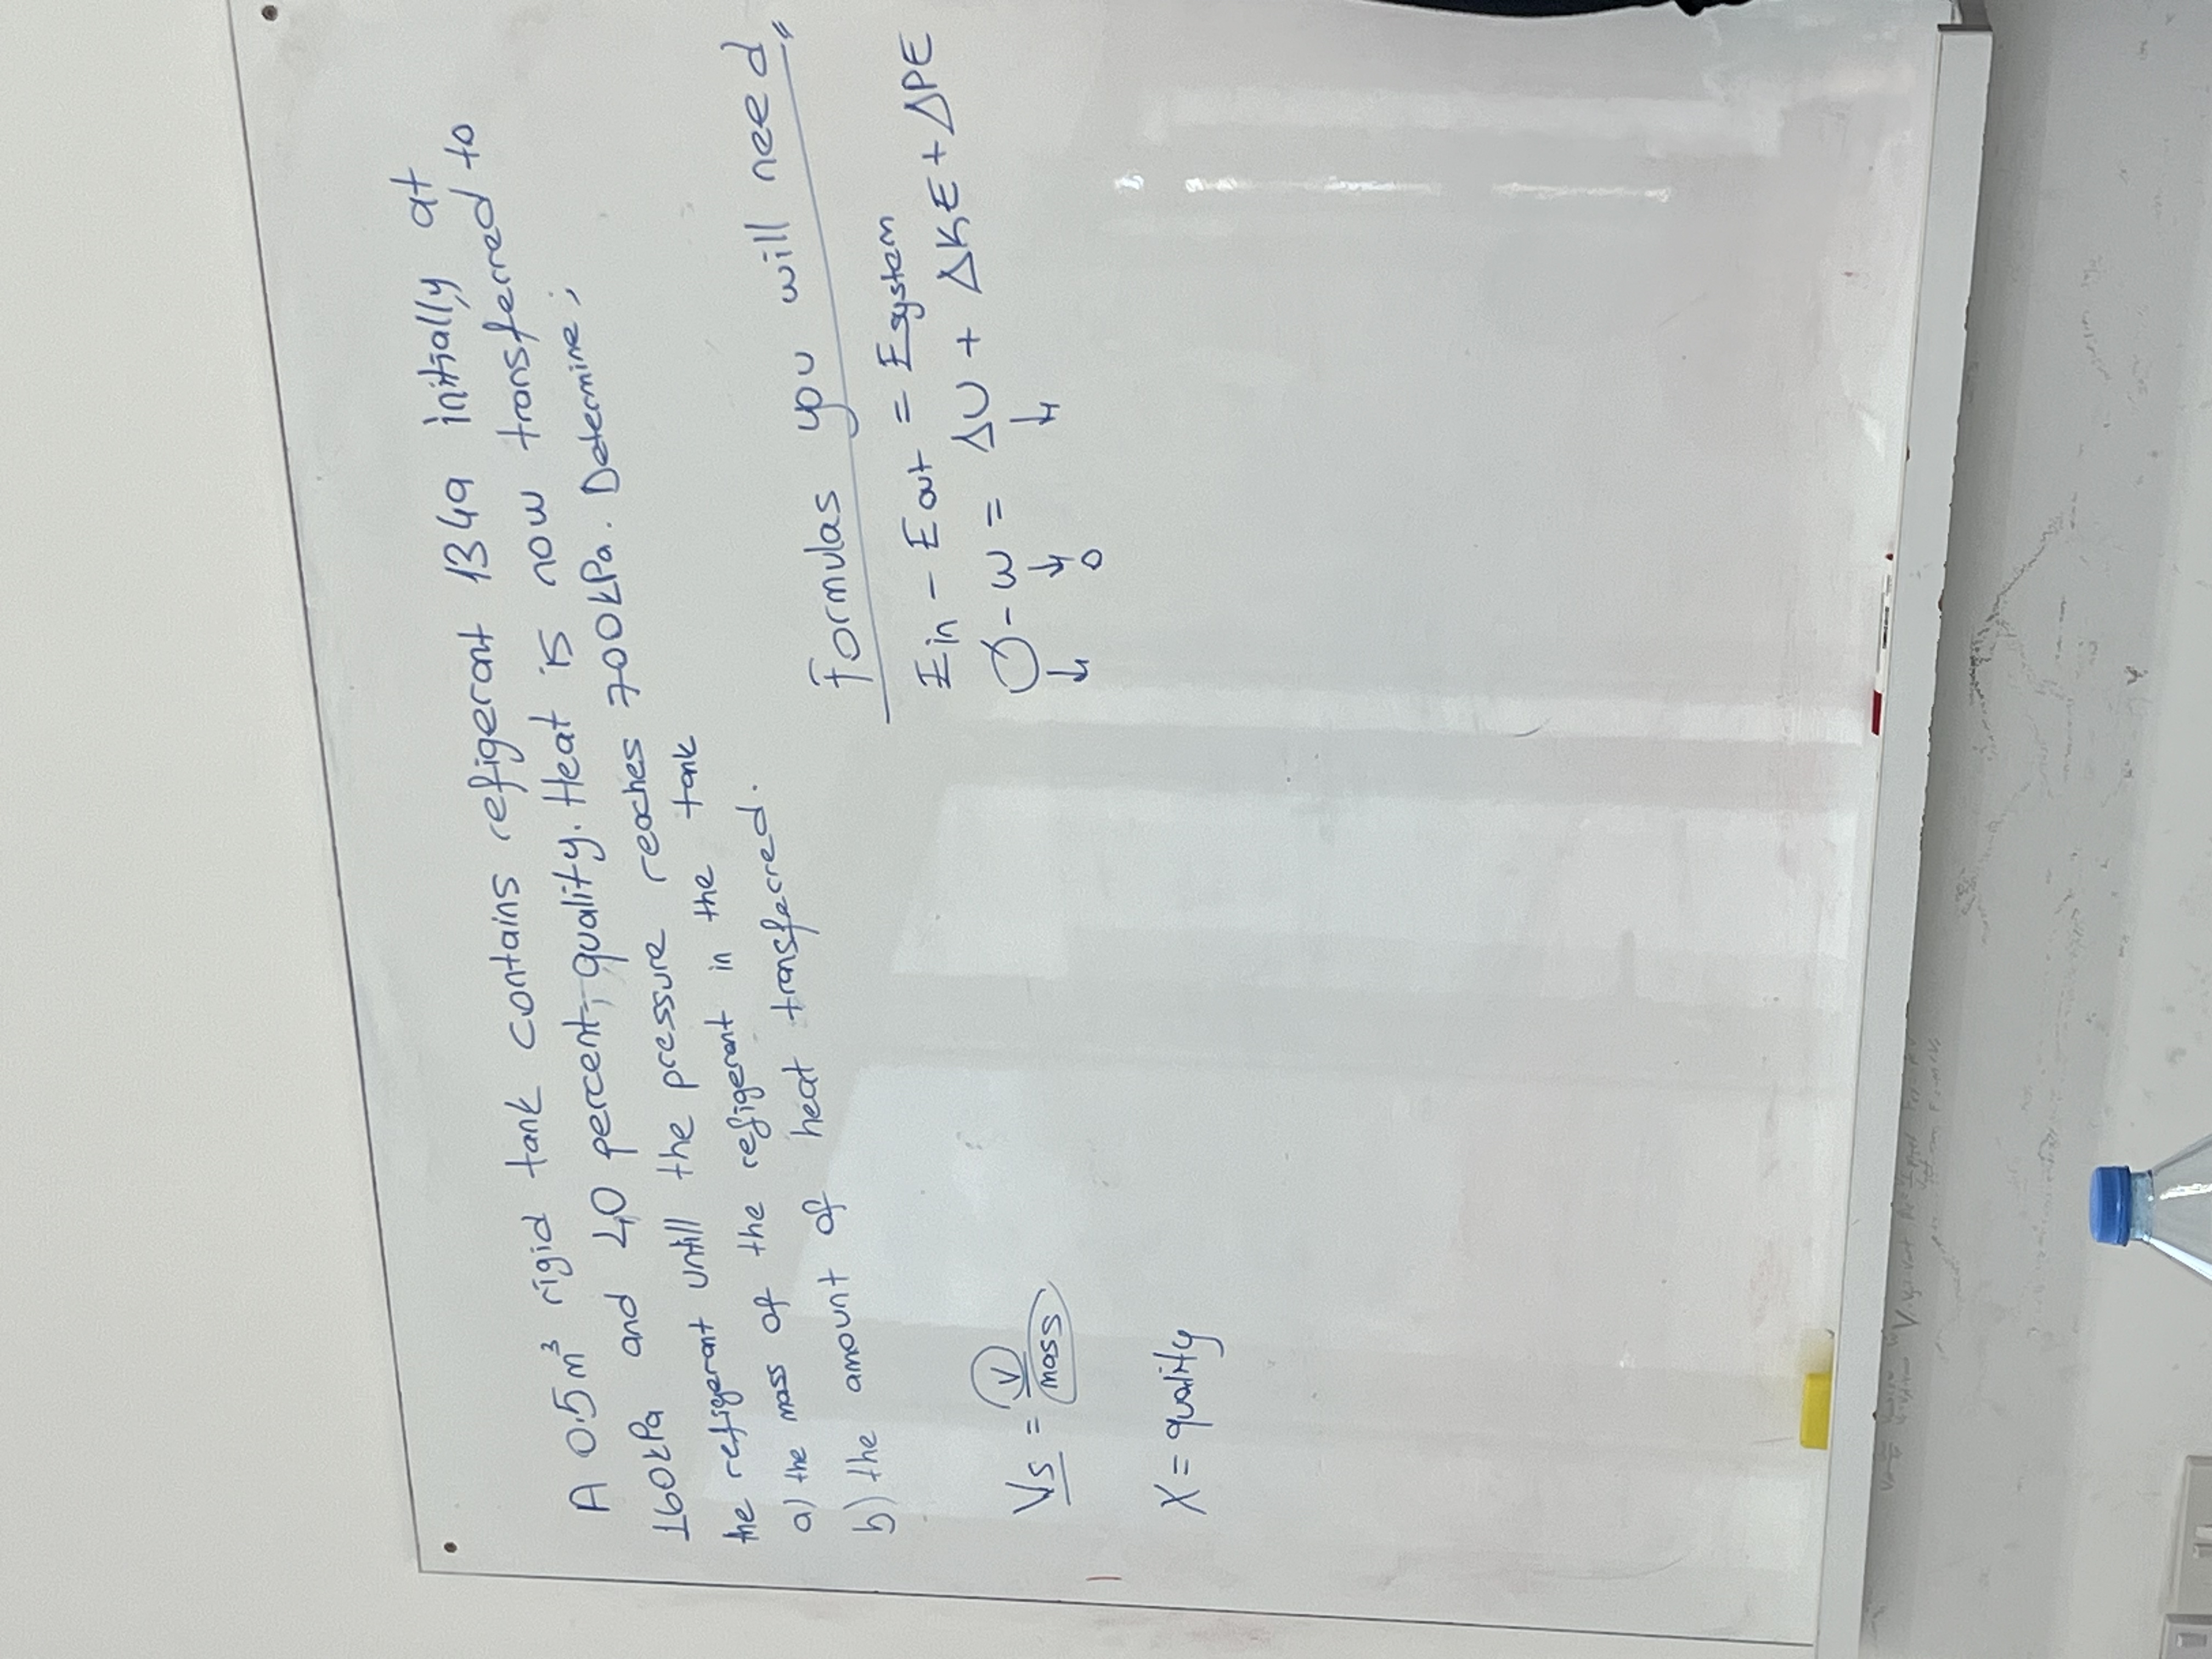 A 0.5m³ rigid tank contains refigerant 134a initially at
160kPa and 40 percent, quality. Heat is now transferred to
the refigerant untill the pressure reaches 700kPa. Determine;
a) the mass of the refigerant in the tank
b) the amount of heat transfecred.
Formulas you will need
Ein - Eout = Esystem
Q - W = ΔU + ΔKE + ΔPE
0
Vs = V/mass
X = quality